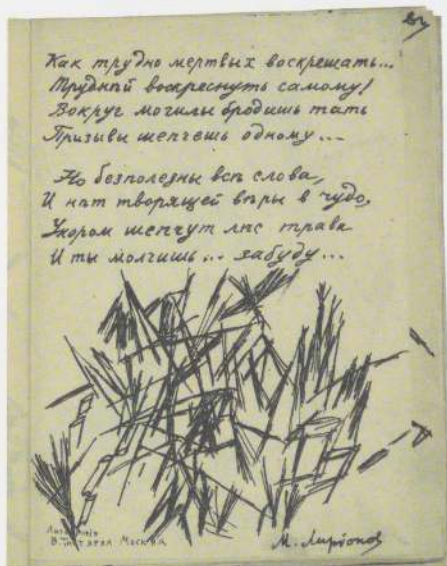 Как трудно мертвых воскрешать...
Труднѣй воскреснуть самому!
Вокруг могилы бродишь тать
Призывы шепчешь одному...
Но безполезны всѣ слова,
И нѣт творящей вѣры в чудо,
Укором шепчут лѣс трава
И ты молчишь... забуду...
В. Титяева Москва
М. Ларионов